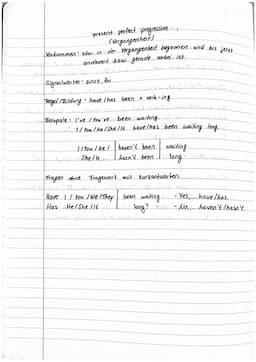 present perfect progressive
(Vergangenheit)
Vorkommen: etw. in der Vergangenheit begonnen und bis jetzt
andauert bzw. gerade vorbei ist
Signalwörter: since, for
Regel/Bildung: have/has been + verb-ing
Beispiele: I've/You've... been waiting
I/You/He/She/It have/has been waiting long...
I/You/We/ haven't been waiting
She/It... hasn't been long
Fragen ohne Fragewort mit Kurzantworten
Have I/You/We/They been waiting - Yes,... have/has.
Has He/She/It long? - No,... haven't/hasn't.